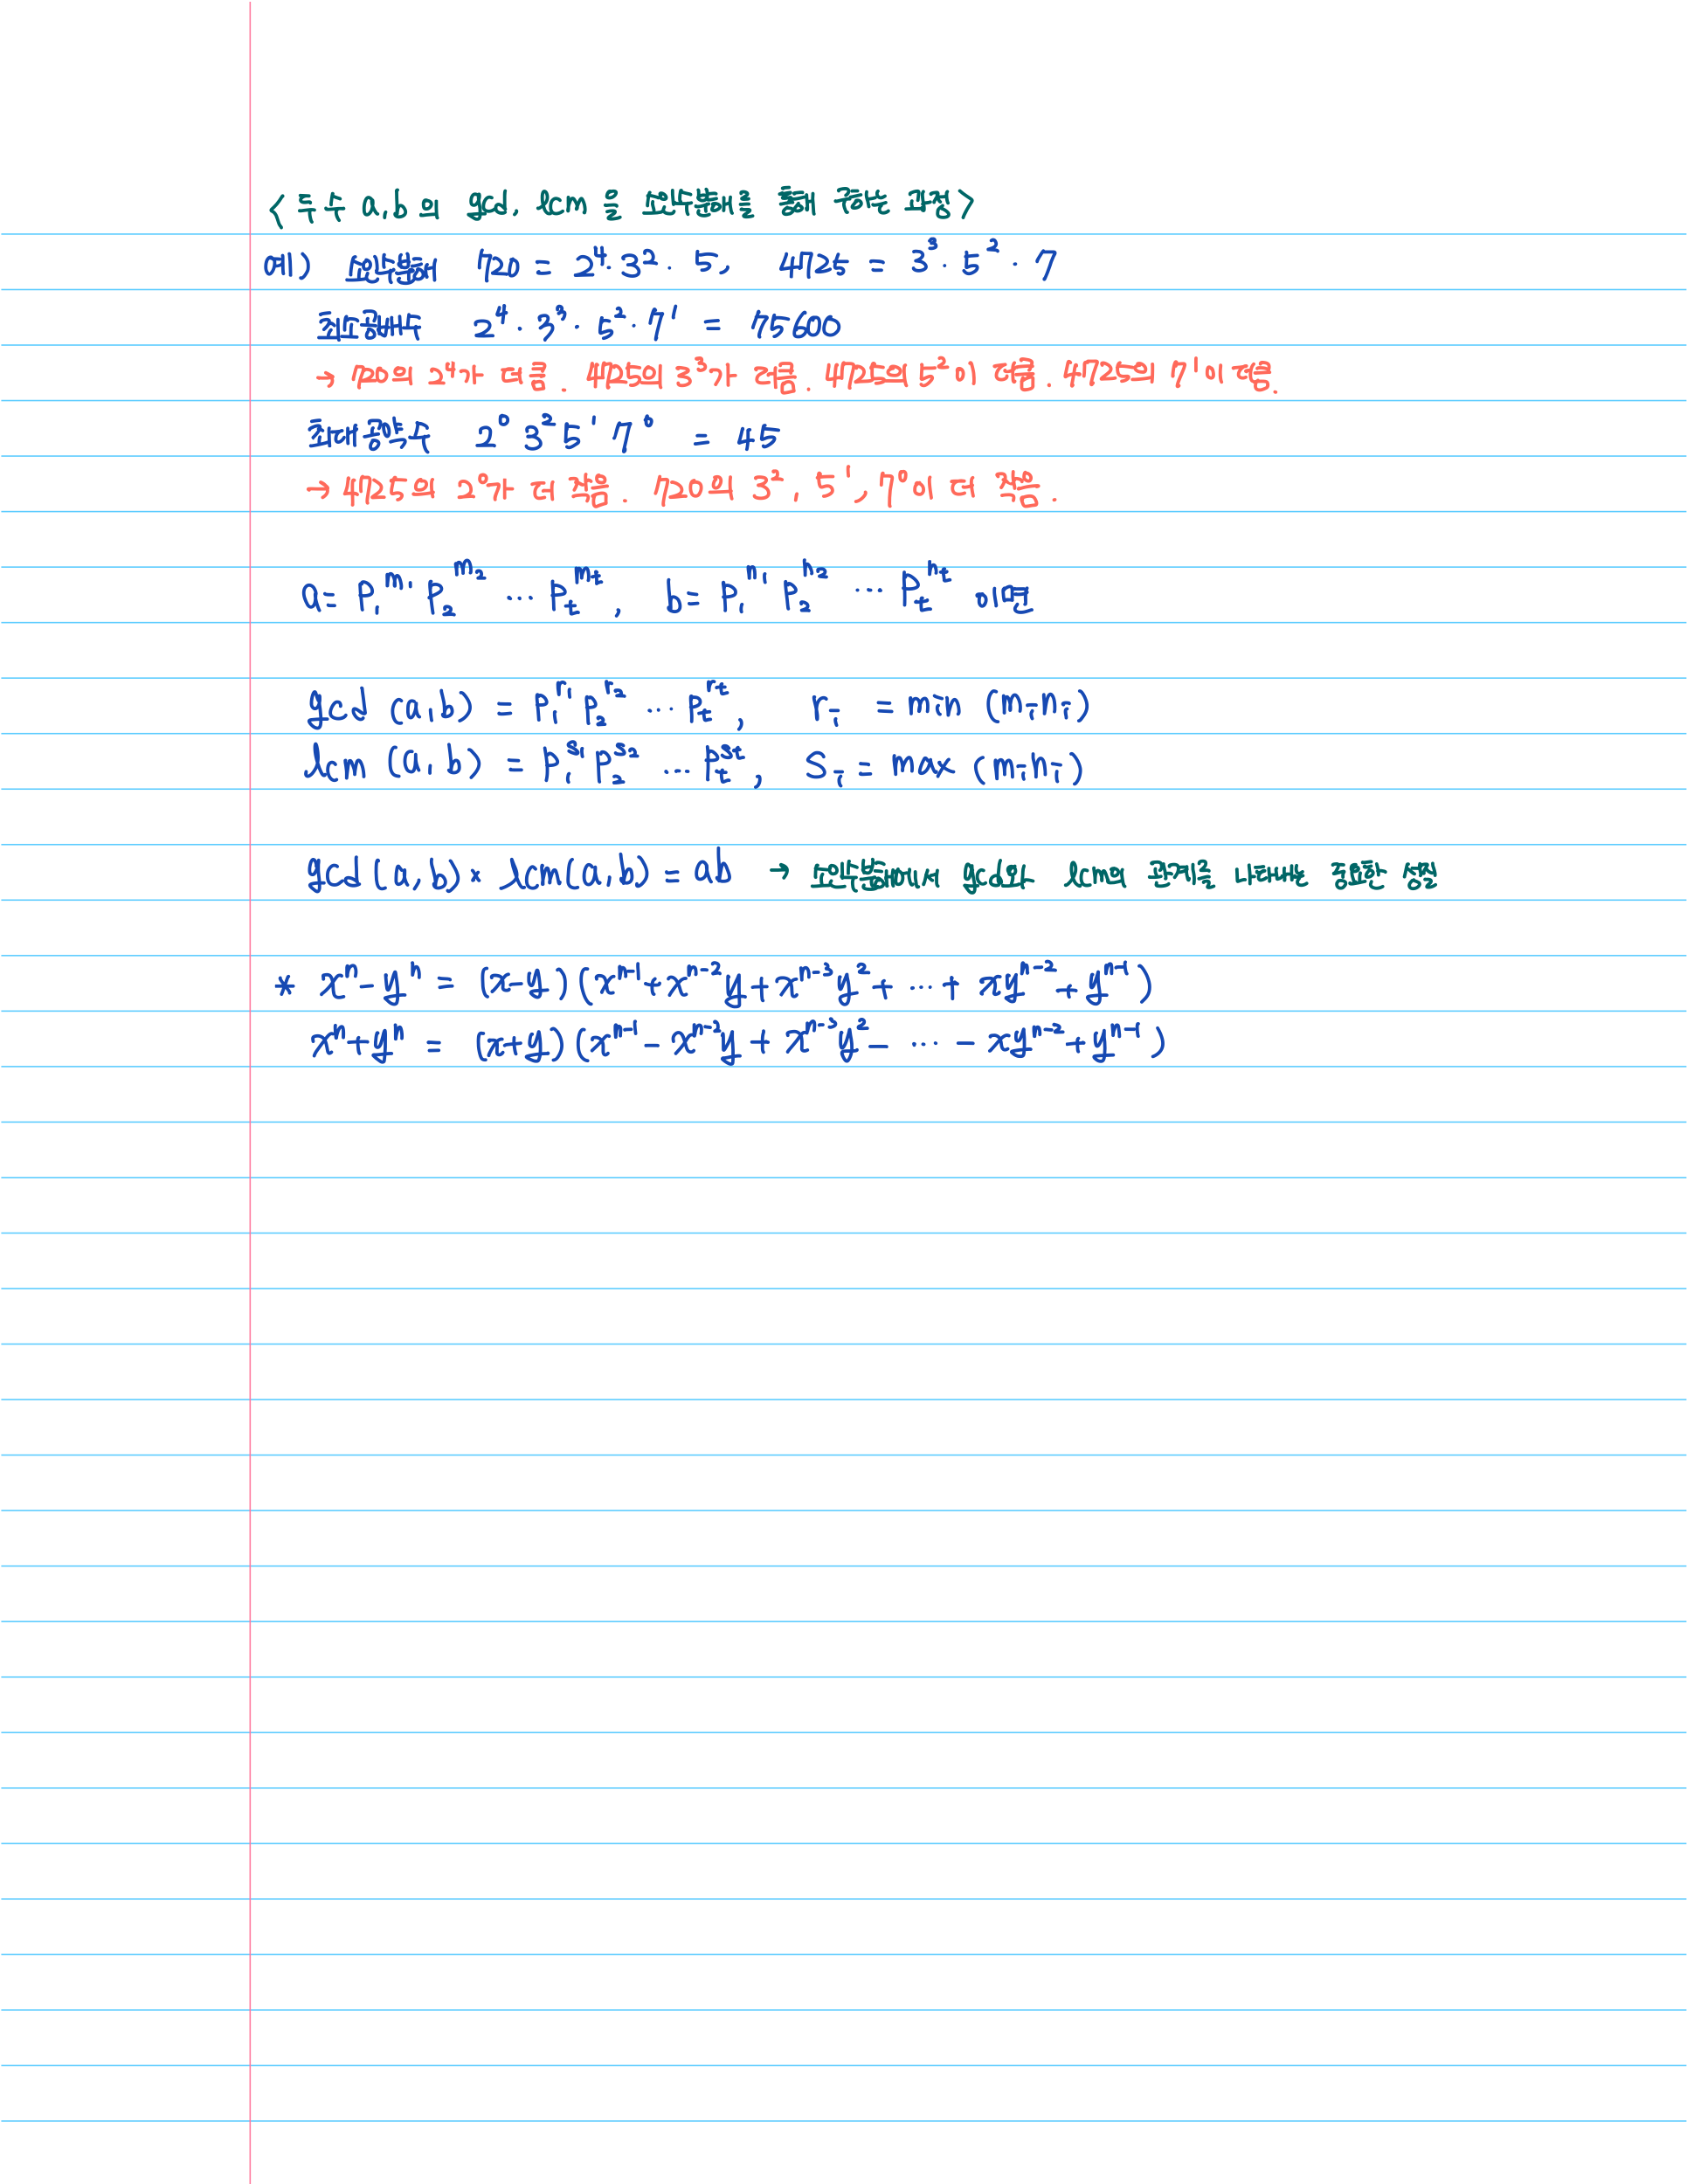 <두 수 a, b의 gcd, lcm을 소인수분해를 통해 구하는 과정>
예) 소인수분해 720 = 2⁴·3²·5, 4725 = 3³·5²·7
최소공배수 2⁴·3³·5²·7¹ = 75600
→ 720의 2⁴가 더 큼. 4725의 3³가 더큼. 4725의 5²이 더큼. 4725의 7¹이 더큼.
최대공약수 2⁰ 3² 5¹ 7⁰ = 45
→ 4725의 2⁰가 더 작음. 720의 3², 5¹, 7⁰이 더 작음.
a = p₁^m₁ p₂^m₂ ··· p_t^m_t, b = p₁^n₁ p₂^n₂ ··· p_t^n_t 이면
gcd (a,b) = p₁^r₁ p₂^r₂ ··· p_t^r_t, rᵢ = min (mᵢnᵢ)
lcm (a,b) = p₁^s₁ p₂^s₂ ... p_t^s_t, sᵢ = max (mᵢnᵢ)
gcd(a,b) × lcm(a,b) = ab → 소인수분해에서 gcd와 lcm의 관계를 나타내는 중요한 성질
* xⁿ - yⁿ = (x-y)(xⁿ⁻¹ + xⁿ⁻²y + xⁿ⁻³y² + ··· + xyⁿ⁻² + yⁿ⁻¹)
xⁿ + yⁿ = (x+y)(xⁿ⁻¹ - xⁿ⁻²y + xⁿ⁻³y² - ··· - xyⁿ⁻² + yⁿ⁻¹)